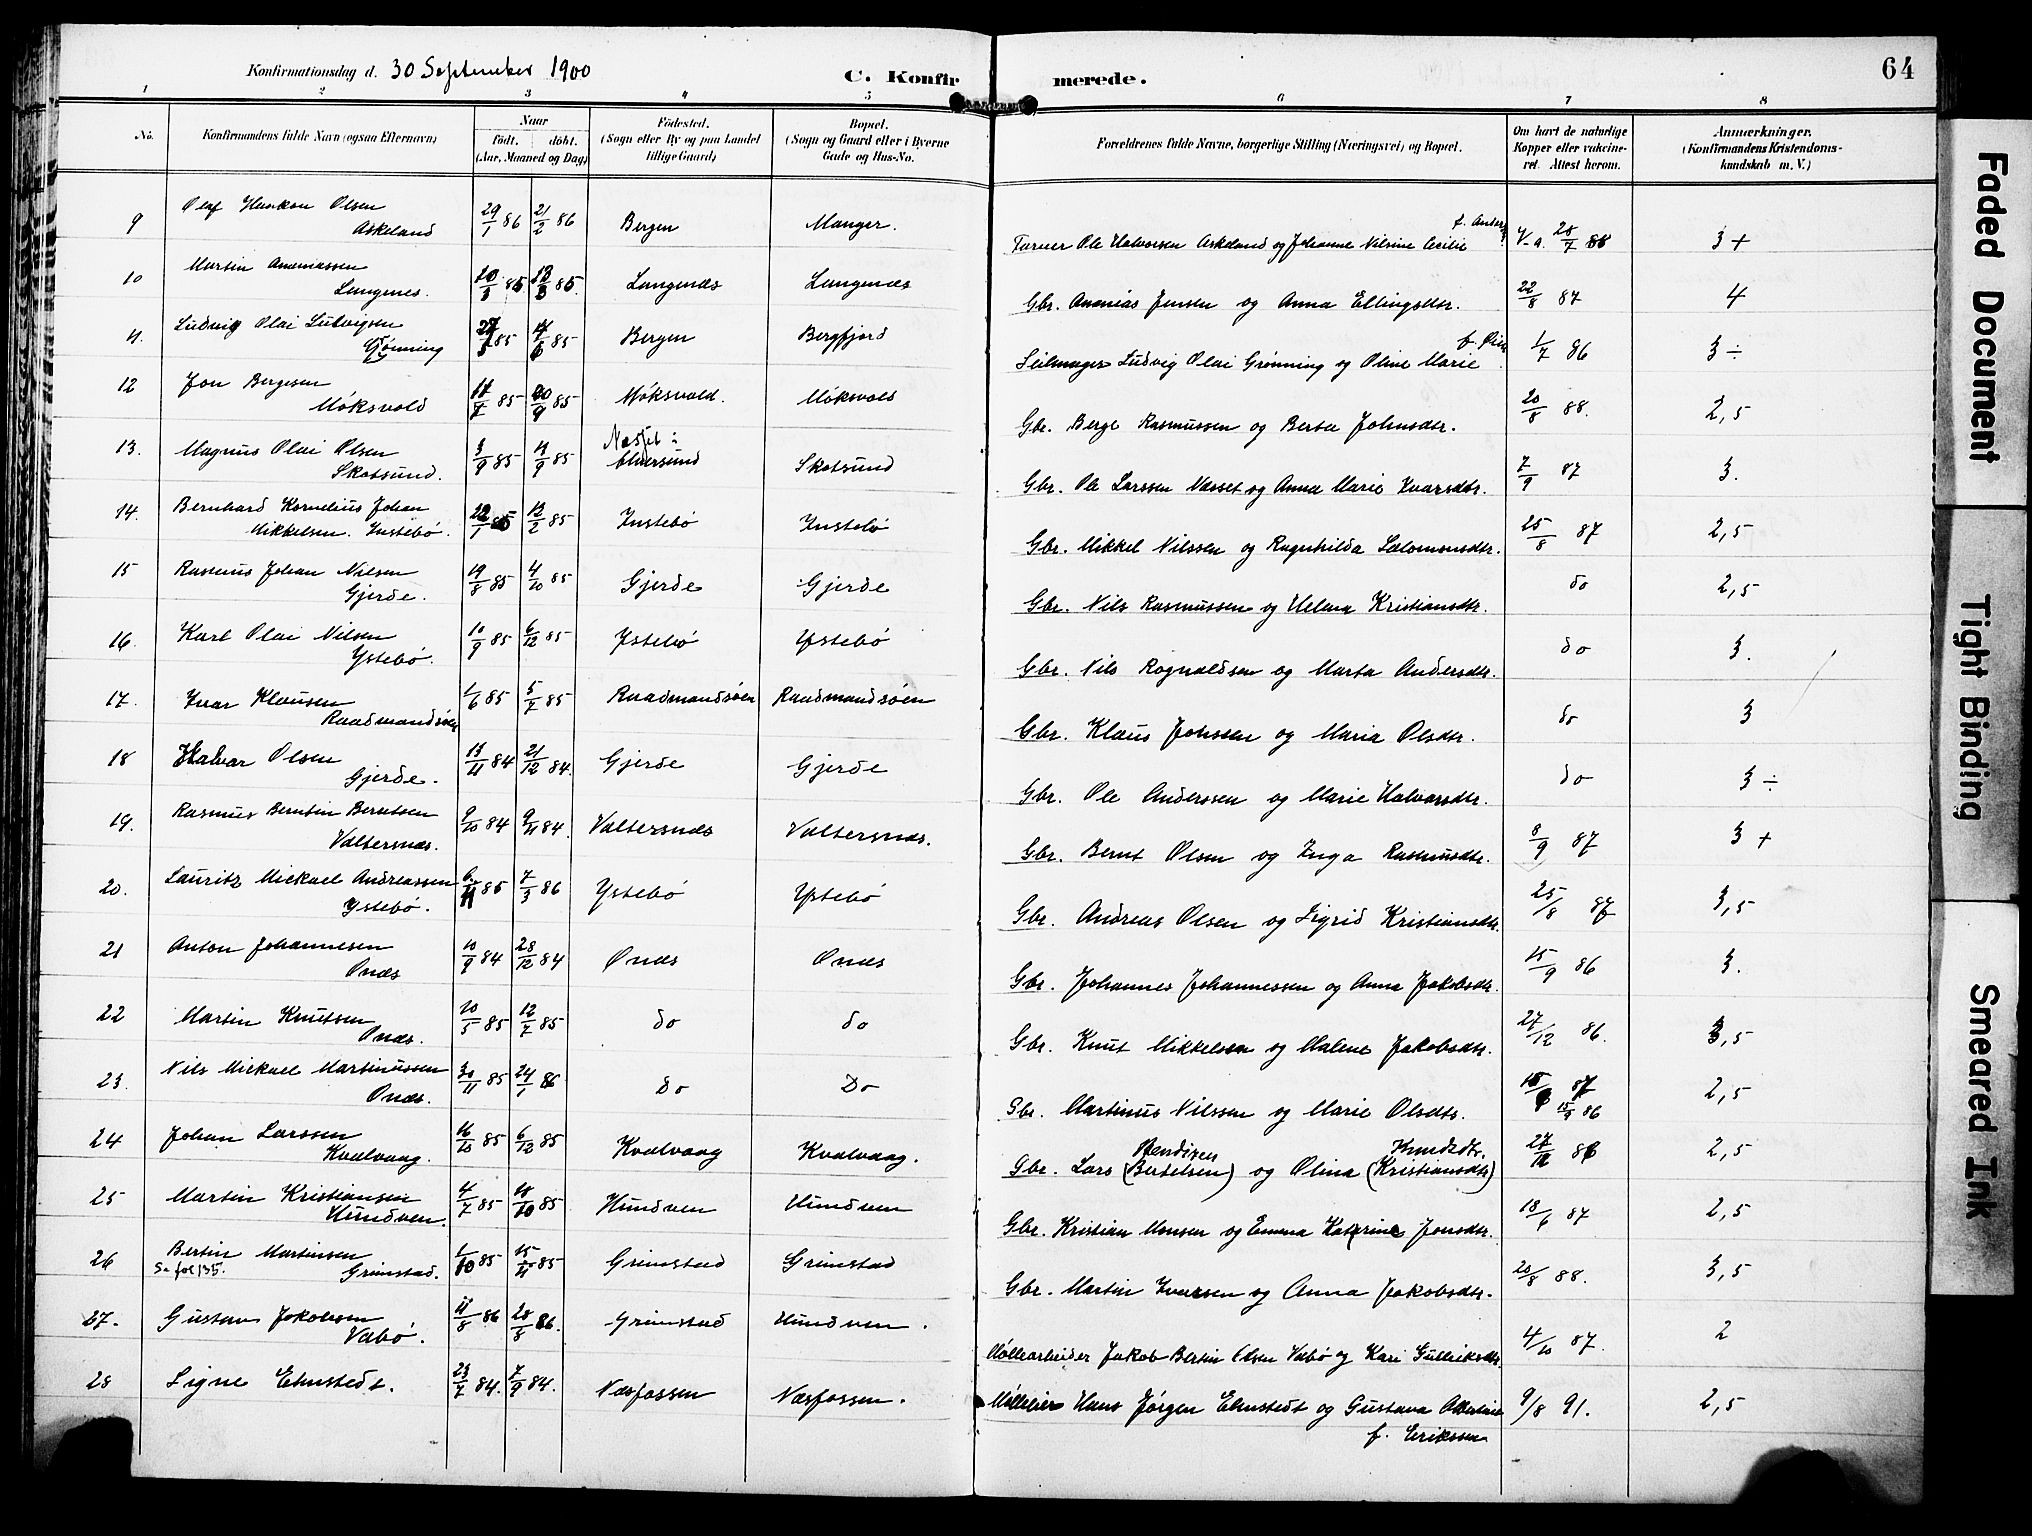 Konfirmationsdag d. 30 September 1900
C. Konfirmerede.
64
1 2 3 4 5 6 7 8
No.
Konfirmandens fulde Navn (ogsaa Efternavn)
Naar
født. döbt.
(Aar, Maaned og Dag)
Födested.
(Sogn eller By og paa Landet
tillige Gaard)
Bopæl.
(Sogn og Gaard eller i Byerne
Gade og Hus-No.
Forældrenes fulde Navne, borgerlige Stilling (Næringsvei) og Bopæl.
Om havt de naturlige
Kopper eller vakcine-
ret. Attest herom.
Anmærkninger.
(Konfirmandens Kristendoms-
kundskab m. V.)
9 Olaf Haakon Olsen Askeland 29/1 86 21/2 86 Bergen Manger. Farver Ole Halvorsen Askeland og Johanne Nilsine Cecilie f. Anders V. a. 28/7 3 +
10 Martin Ananiassen Langenes. 85 85 Langenæs Langenæs Gbr. Ananias Jensen og Anna Ellingsdtr. 22/8 87 4
11 Ludvig Olai Ludvigsen Grönning 85 85 Bergen Bergfjord Seilmager Ludvig Olai Grönning og Oline Marie 1/7 86 3 ÷
12 Jon Bergesen Möksvold 85 20/9 85 Möksvold. Möksvold Gbr. Berge Rasmussen og Berta Johnsdtr. 20/8 88. 2,5
13. Magnus Olai Olsen Skotsund. 3/9 85 85 Næsset i Alversund Skotsund Gbr. Ole Larssen Næsset og Anna Marie Ivarsdtr. 7/9 87 3.
14. Bernhard Kornelius Johan Mikkelsen Instebö. 85 13/2 85 Instebö Instebö Gbr. Mikkel Nilssen og Ragnhilda Salomonsdtr. 25/8 87 2,5
15 Rasmus Johan Nilsen Gjerde. 19/8 85 4/10 85 Gjerde Gjerde Gbr. Nils Rasmussen og Helena Kristiansdtr. do 2,5
16 Karl Olai Nilsen Ystebö. 10/9 85 6/12 85 Ystebö Ystebö Gbr. Nils Rognaldsen og Marta Andersdtr. do 3.
17. Ivar Klausen Raadmandsöen 1/6 85 5/7 85 Raadmandsöen Raadmandsöen Gbr. Klaus Johssen og Maria Olsdtr. do 3
18 Halvar Olsen Gjerde. 13/11 84 21/12 84. Gjerde Gjerde Gbr. Ole Anderssen og Marie Halvarsdtr. do 3 ÷
19. Rasmus Berntin Berntsen Valtersnæs. 9/10 84 9/11 84. Valtersnæs Valtersnæs. Gbr. Bernt Olsen og Inga Rasmusdtr. 8/9 87 3 +
20. Lauritz Mickael Andreassen Ystebö. 6/11 85 7/3 86 Ystebö Ystebö Gbr. Andreas Olsen og Sigrid Kristiansdtr. 25/8 87 3,5
21 Anton Johannesen Onæs 10/9 84 28/12 84 Onæs Onæs Gbr. Johannes Johannessen og Anna Jakobsdtr. 15/9 86 3.
22 Martin Knutsen Onæs. 10/5 85 12/7 85 do do Gbr. Knut Mikkelsen og Malene Jakobsdtr. 27/12 86. 3,5
23. Nils Mickael Martinussen Onæs. 30/11 85 24/1 86 Do Do Gbr. Martinus Nilssen og Marie Olsdtr. 87 15/9 86 2,5
24 Johan Larssen Kvalvaag. 16/10 85 6/12 85 Kvalvaag Kvalvaag. Gbr. Lars (Bertelsen) og Olina Knudsdtr. (Kristiansdtr) 27/12 86 2,5
25 Martin Kristiansen Hundven. 4/7 85 18/10 85 Hundven Hundven Gbr. Kristian Monsen og Emma Katrine Jonsdtr. 18/6 87 2,5
26 Bertin Martinsen Grimstad. Se fol 135. 1/10 85 15/11 85 Grimstad Grimstad Gbr. Martin Ivarsen og Anna Jakobsdtr. 20/8 88. 3,5
27. Gustav Jakobsen Vabö. 11/8 86 28/8 86. Grimstad Hundven. Möllearbeider Jakob Bertin Olsen Vabö og Kari Gulleiksdtr. 4/10 87. 2
28 Signe Ehnstedt. 23/7 84. 7/9 84. Næsfossen Næsfossen. Mölleeier Hans Jörgen Ehnstedt og Gustava f. Eriksen 9/8 91. 2,5
Faded Document
Tight Binding
Smeared Ink